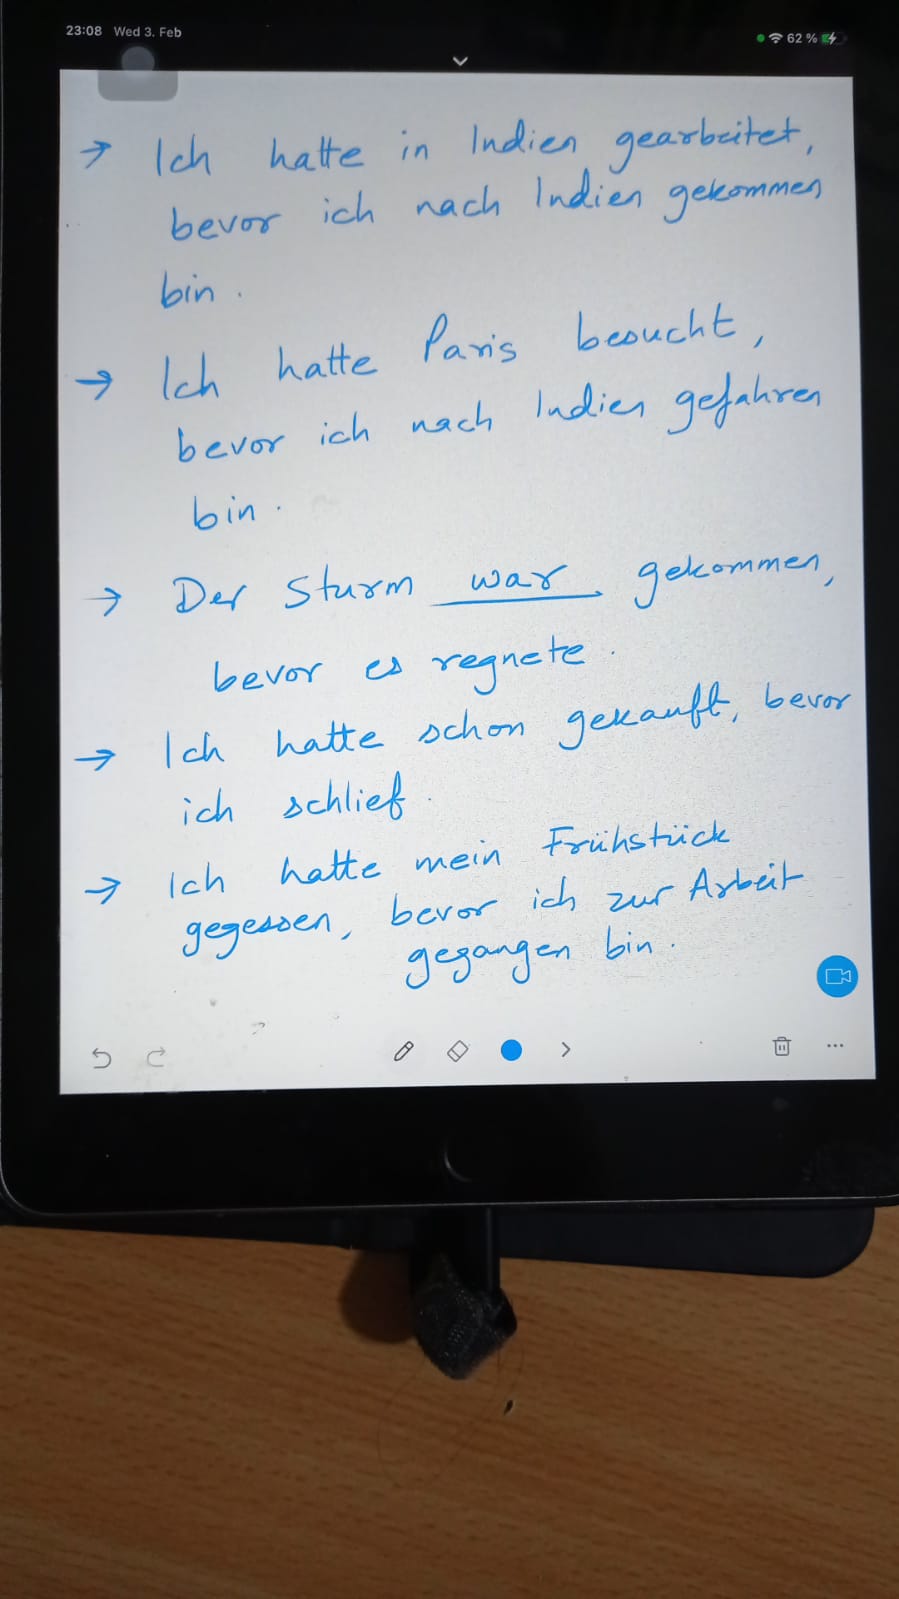 23:08 Wed 3. Feb
62 %
→ Ich hatte in Indien gearbeitet,
bevor ich nach Indien gekommen
bin.
→ Ich hatte Paris besucht,
bevor ich nach Indien gefahren
bin.
→ Der Sturm war gekommen,
bevor es regnete.
→ Ich hatte schon gekauft, bevor
ich schlief.
→ Ich hatte mein Frühstück
gegessen, bevor ich zur Arbeit
gegangen bin.